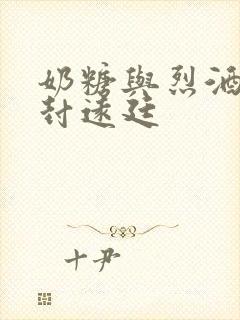 奶糖與烈酒
封遠廷
十尹